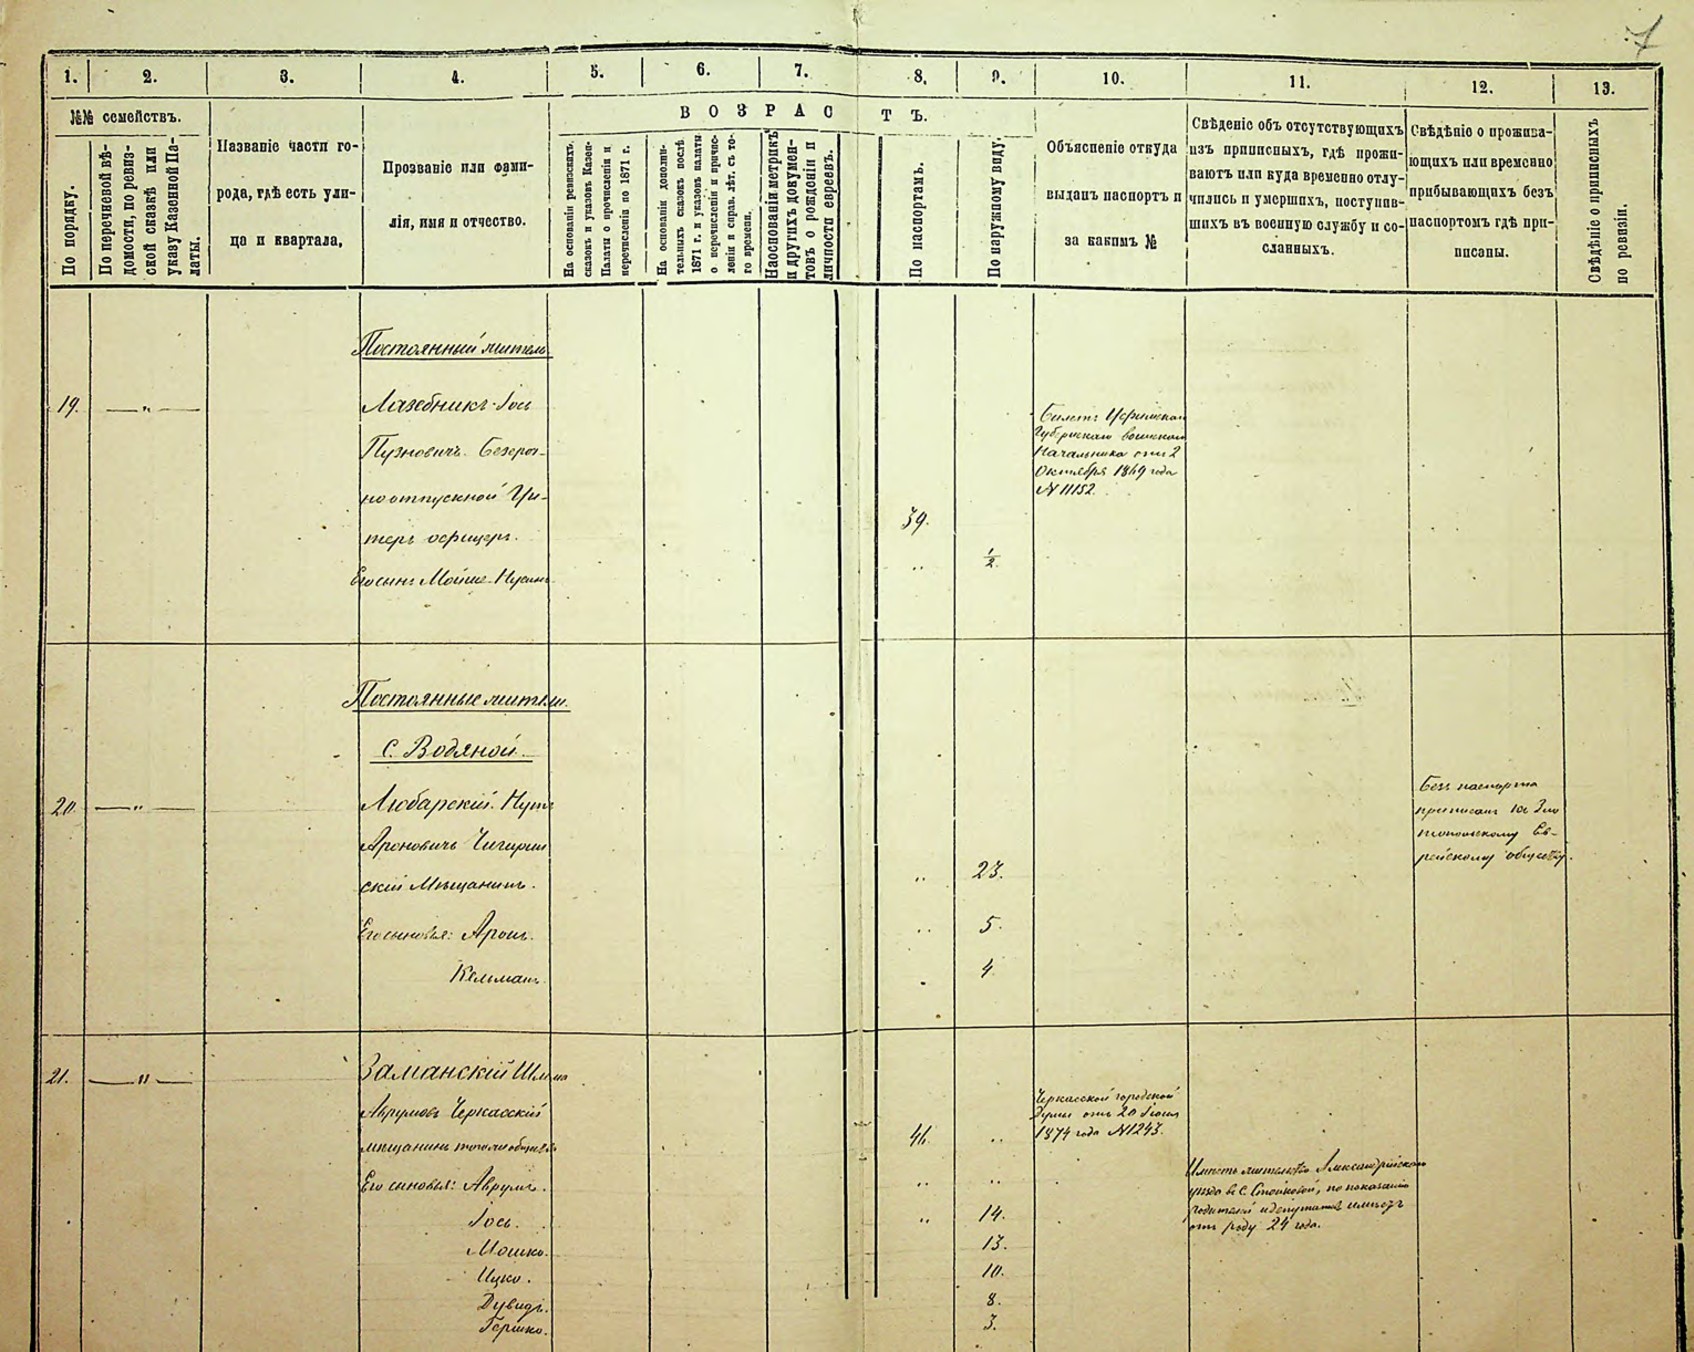 7
1. 2. 3. 4. 5. 6. 7. 8. 9. 10. 11. 12. 13.
№№ семействъ.
По порядку.
По перечневой вѣ-
домости, по ревиз-
ской сказкѣ или
указу Казенной Па-
латы.
Названіе части го-
рода, гдѣ есть ули-
ца и квартала.
Прозваніе или фами-
лія, имя и отчество.
ВОЗРАСТЪ.
На основаніи ревизскихъ
сказокъ и указовъ Казен-
Палаты о причисленіи и
перечисленіи по 1871 г.
На основаніи дополни-
тельныхъ сказокъ послѣ
1871 г. и указовъ палаты
о перечисленіи и причис-
леніи и справ. лѣт. съ то-
го времени.
На основаніи метрикъ
и другихъ докумен-
товъ о рожденіи и
личности евреевъ.
По паспортамъ.
По наружному виду.
Объясненіе откуда
выданъ паспортъ и
за какимъ №
Свѣденіе объ отсутствующихъ
изъ приписныхъ, гдѣ прожи-
ваютъ или куда временно отлу-
чились и умершихъ, поступив-
шихъ въ военную службу и со-
сланныхъ.
Свѣдѣніе о прожива-
ющихъ или временно
прибывающихъ безъ
паспортомъ гдѣ при-
писаны.
Свѣдѣніе о приписныхъ
по ревизіи.
Постоянный житель
19. — " — Лазебникъ Іось
Пузновичъ Безсроч-
ноотпускной Ун-
теръ офицеръ. 39.
Его сынъ Мойше-Нусинъ " 1/2
Билетъ
Губернскаго воинскаго
Начальника отъ 2
Октября 1869 года
N 11152.
Постоянные жители
С. Водяной.
20 — " — Любарскій Нута
Ароновичъ Чигирин
скій Мѣщанинъ. " 23.
Его сыновья: Аронъ. " 5.
Кельманъ. 4
Безъ паспорта
приписанъ къ Зла
топольскому Ев-
рейскому обществу.
21. — " — Заманскій Шлема
Аврумовъ Черкасскій
мѣщанинъ того же общества 46. "
Его сыновья: Аврумъ. " "
Іось. " 14.
Мошко. 13.
Ицко. 10.
Дувидъ. 8.
Гершко. 3.
Черкасской городской
Думы отъ 20 Іюня
1874 года N 1243.
Имѣетъ жительство Александрійскаго
уѣзда въ С. по показанію
родителей и депутатовъ имѣетъ
отъ роду 24 года.